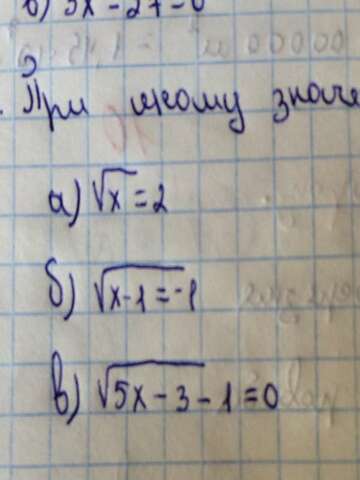 б) 3х - 27 = 0
При якому значе
а) √x = 2
б) √x-1 = -1
в) √5x - 3 - 1 = 0